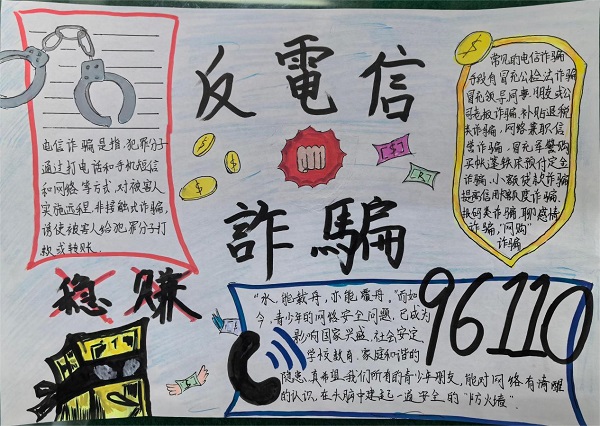 反電信
詐騙
电信诈骗是指犯罪分子
通过打电话和手机短信
和网络等方式,对被害人
实施远程、非接触式诈骗,
诱使被害人给犯罪分子打
款或转账.
常见的电信诈骗
手段有冒充公检法诈骗
冒充领导同事朋友或公
司老板诈骗、补贴退税
类诈骗,网络兼职信
誉诈骗,冒充军警购
买帐篷铁床预付定金
诈骗、小额贷款诈骗
提高信用额度诈骗、
诈骗,聊感情
诈骗,"网购"
诈骗
稳赚
96110
"水,能载舟,亦能覆舟,"而如
今,青少年的网络安全问题,已成为
影响国家兴盛,社会安定
学校教育、家庭和谐的
隐患,真希望,我们所有的青少年朋友,能对网络有清醒
的认识,在大脑中建起一道安全的"防火墙".